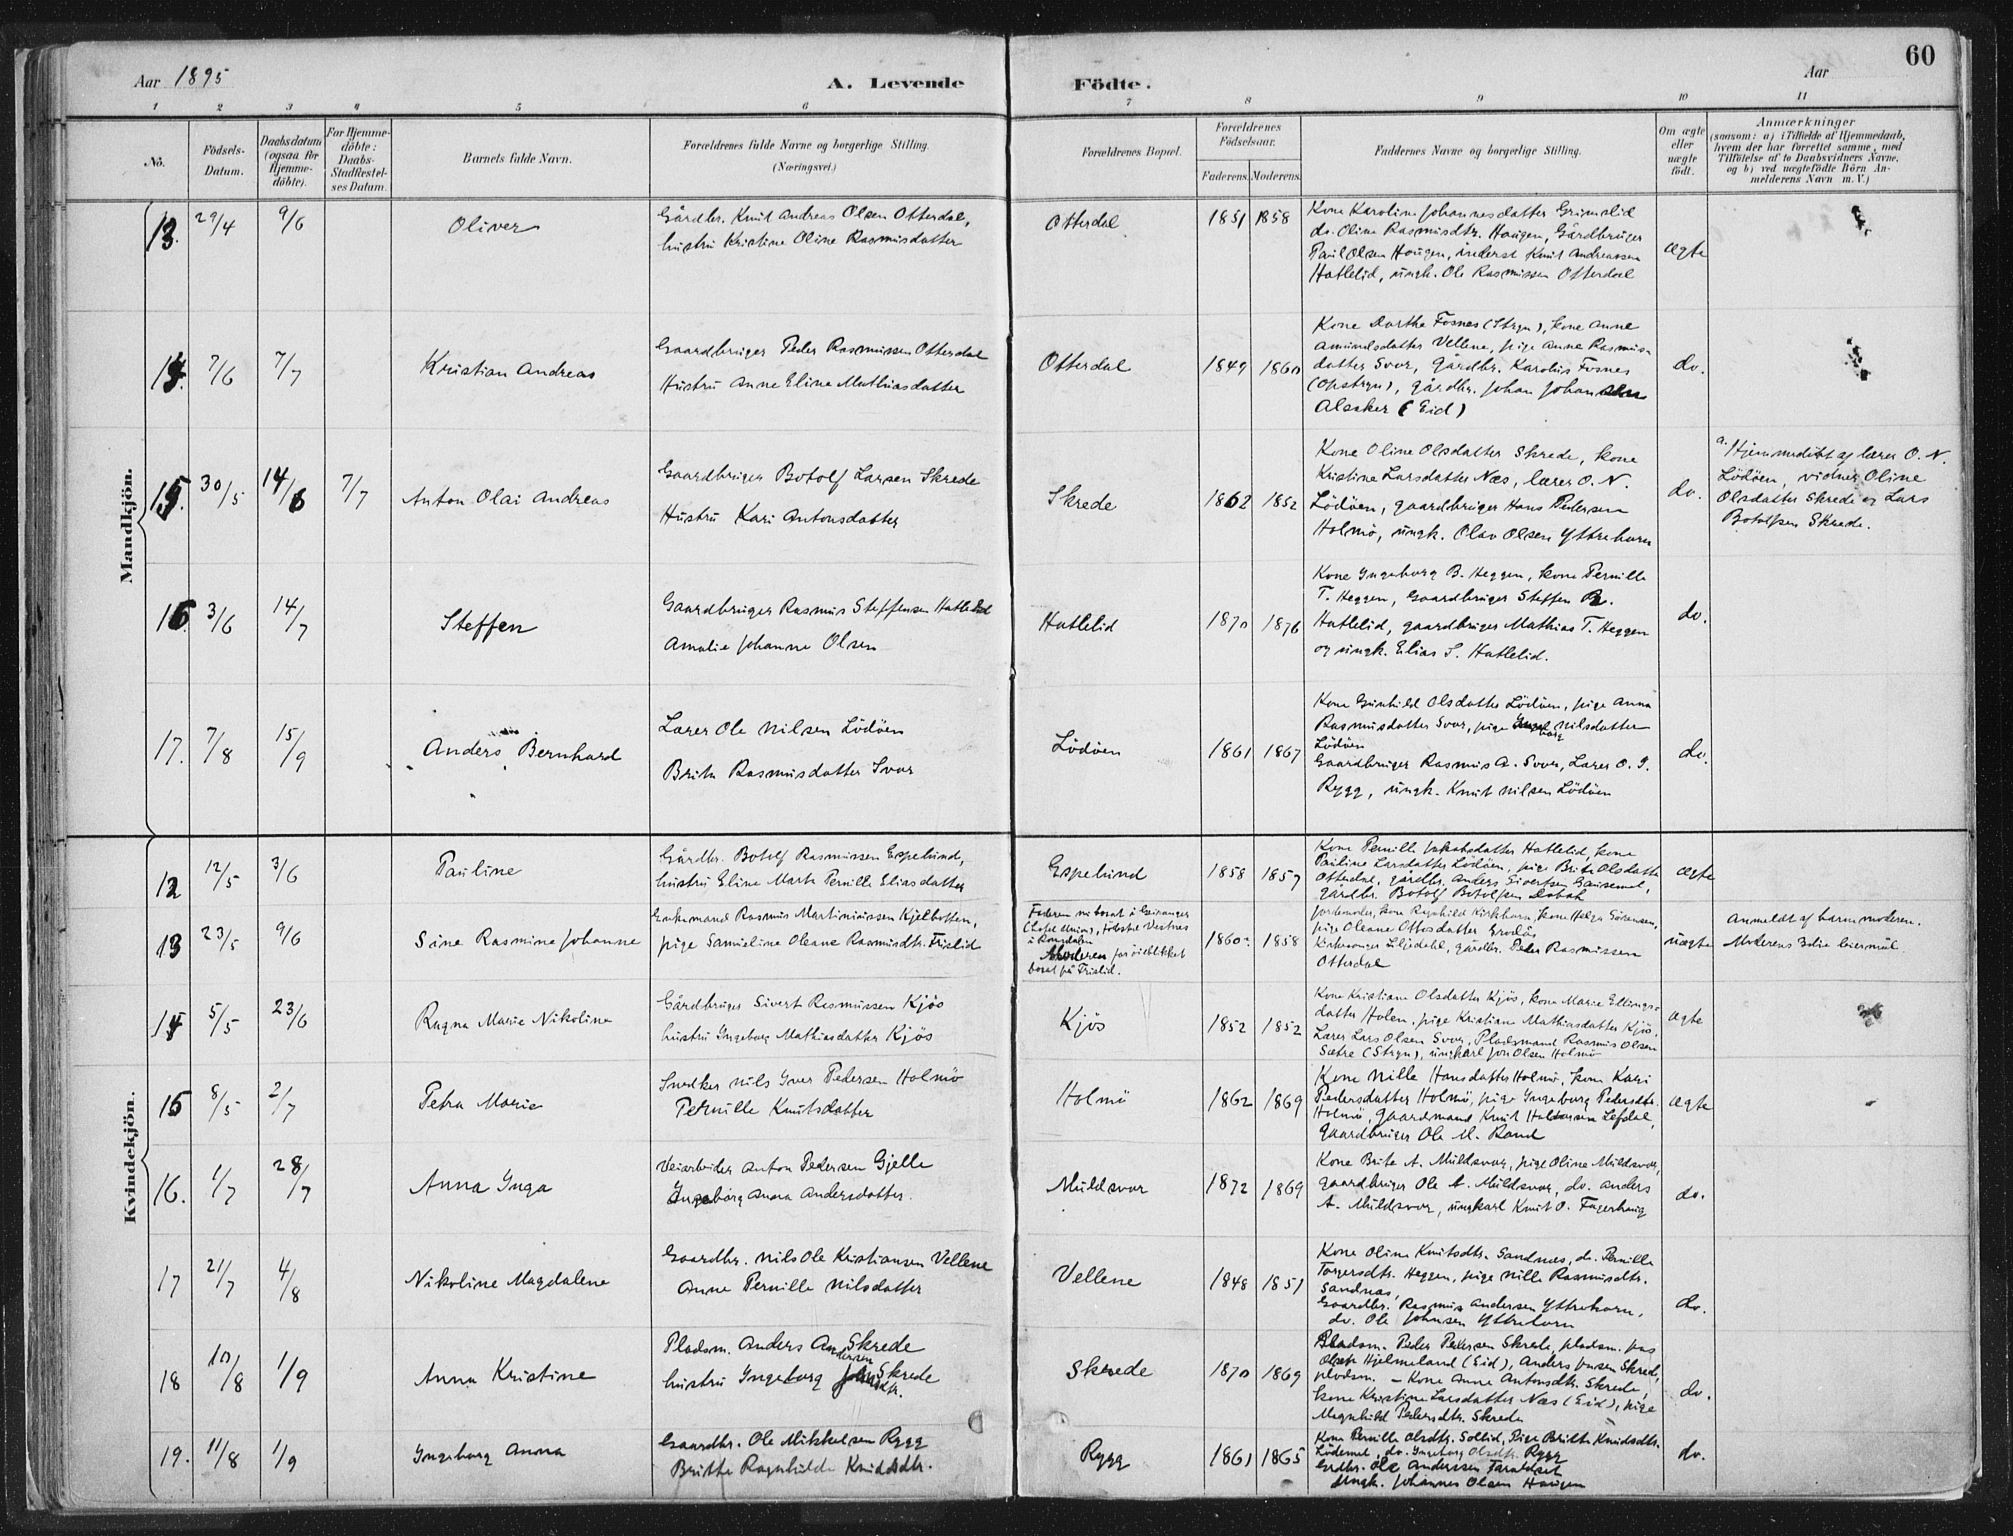 60
Aar 1895
A. Levende Födte.
Aar
1 2 3 4 5 6 7 8 9 10 11
No.
Födsels-Datum.
Daabsdatum (ogsaa for Hjemme-döbte).
For Hjemme-döbte: Daabs-Stadfæstel-ses Datum.
Barnets fulde Navn.
Forældrenes fulde Navne og borgerlige Stilling.
(Næringsvei.)
Forældrenes Bopæl.
Forældrenes Födselsaar.
Faderens. Moderens.
Faddernes Navne og borgerlige Stilling.
Om ægte eller uægte födt.
Anmærkninger
(saasom: a) i Tilfælde af Hjemmedaab,
hvem der har forrettet samme, med
Tilföielse af to Daabsvidners Navne,
og b) ved uægtefödte Börn An-
melderens Navn m. V.)
Mandkjön.
13. 29/4 9/6 Oliver
Gårdbr. Knut Andreas Olsen Otterdal,
hustru Kristine Oline Rasmusdatter
Otterdal 1851 1858
Kone Karoline Johannesdatter Grimslid
do. Oline Rasmusdtr. Haugen, Gårdbruger
Paul Olsen Haugen, inderst Knut Andreassen
Hatlelid, ungk. Ole Rasmussen Otterdal
ægte
14. 7/6 7/7 Kristian Andreas
Gaardbruger Peder Rasmussen Otterdal
Hustru Anne Eline Mathiasdatter
Otterdal 1849 1860
Kone Dorthe Fosnes (Stryn), kone Anne
Amundsdatter Vellene, pige Anne Rasmus-
datter Svor, gårdbr. Karolus Fosnes
(Opstryn), gårdbr. Johan Johannsen
Alsaker (Eid)
do.
15. 30/5 14/6 7/7 Anton Olai Andreas
Gaardbruger Botolf Larsen Skrede
Hustru Kari Antonsdatter
Skrede 1862 1852
Kone Oline Olsdatter Skrede, kone
Kristine Larsdatter Næs, lærer O. N.
Lödöen, gaardbruger Hans Pedersen
Holmö, ungk. Olav Olsen Yttrehorn
do.
a. Hjemmedöbt af lærer O. N.
Lödöen, vidner Oline
Olsdatter Skrede og Lars
Botolfsen Skrede.
16. 3/6 14/7 Steffen
Gaardbruger Rasmus Steffensen Hatlelid
Amalie Johanne Olsen
Hatlelid 1870 1876
Kone Ingeborg B. Heggen, kone Pernille
T. Heggen, Gaardbruger Steffen R.
Hatlelid, gaardbruger Mathias T. Heggen
og ungk. Elias S. Hatlelid.
do.
17. 7/8 15/9 Anders Bernhard
Lærer Ole Nilsen Lödöen
Brita Rasmusdatter Svor
Lödöen 1861 1867
Kone Gunhild Olsdatter Lödöen, pige Anna
Rasmusdatter Svor, pige Ingeborg Nilsdatter
Lödöen
Gaardbruger Rasmus A. Svor, Lærer O. I.
Rygg, ungk. Knut Nilsen Lödöen
do.
Kvindekjön.
12 12/5 3/6 Pauline
Gårdbr. Botolf Rasmussen Espelund,
hustru Eline Marte Pernille Eliasdatter
Espelund 1858 1857
Kone Pernille Jakobsdatter Hatlelid, kone
Pauline Larsdatter Lödöen, pige Brite Olsdatter
Otterdal, gårdbr. Anders Sivertsen Gausemel,
gårdbr. Botolf Botolfsen
ægte
13 23/5 9/6 Sine Rasmine Johanne
Enkemand Rasmus Martiniussen Kjelbotten,
pige Samueline Oleane Rasmusdtr. Frislid
Faderen nu bosat i Geiranger
(hotel Union),
i Romsdalen
Moderen for öieblikket
bosat på Frislid.
1860 1858
Jordemoder, kone Ragnhild Kirkhorn, kone Helga Sörensen,
pige Oleane Ottosdatter Grodås
Kirkesanger Liljedahl, gårdbr. Peder Rasmussen
Otterdal
uægte
Anmeldt af barnemoderen.
Moderens 3die leiermål
14 5/5 23/6 Ragna Marie Nikoline
Gårdbruger Sivert Rasmussen Kjös
hustru Ingeborg Mathiasdatter Kjös
Kjös 1852 1852
Kone Kristiane Olsdatter Kjös, kone Marie Ellings-
datter Holen, pige Kristiane Mathiasdatter Kjös,
Lærer Lars Olsen Svor, Pladsmand Rasmus Olsen
Sætre (Stryn), ungkarl Jon Olsen Holmö
ægte
15 8/5 2/7 Petra Marie
Snedker Nils Iver Pedersen Holmö
Pernille Knutsdatter
Holmö 1862 1869
Kone Nille Hansdatter Holmö, kone Kari
Pedersdatter Holmö, pige Ingeborg Pedersdtr.
Holmö, gaardmand Knut Haldorsen Lefdal,
gaardbruger Ole M. Rand
ægte
16. 1/7 28/7 Anna Inga
Veiarbeider Anton Pedersen Gjelle
Ingeborg Anna Andersdatter.
Muldsvor 1872 1869
Kone Brite A. Muldsvor, pige Oline Muldsvor,
gaardbruger Ole A. Muldsvor, do. Anders
A. Muldsvor, ungkarl Knut O. Fagerhaug
do.
17 21/7 4/8 Nikoline Magdalene
Gaardbr. Nils Ole Kristiansen Vellene
Anne Pernille Nilsdatter
Vellene 1848 1851
Kone Oline Knutsdtr. Sandnæs, do. Pernille
Torgersdtr. Heggen, pige Nille Rasmusdtr.
Sandnæs,
Gaardbr. Rasmus Andersen Yttrehorn,
do. Ole Johnsen Yttrehorn
do.
18 10/8 1/9 Anna Kristine
Pladsm. Anders Andersen Skrede
hustru Ingeborg Skrede
Skrede 1870 1869
Pladsm. Peder Pedersen Skrede, pladsm. Jas
Olsen Hjelmeland (Eid), Anders Jansen Skrede,
pladsm. - Kone Anne Antonsdtr. Skrede,
kone Kristine Larsdatter Næs (Eid), pige
Magnhild Pedersdtr. Skrede
do.
19. 11/8 1/9 Ingeborg Anna
Gaardbr. Ole Mikkelsen Rygg
Britte Ragnhilde Knudsdtr.
Rygg 1861 1865
Kone Pernille Olsdtr. Sollid, Pige Britte Knudsdtr.
Lödemel, do. Ingeborg Olsdtr. Rygg
Grdbr. Ole Anderssen Taraldset
Ungk. Johannes Olsen Haugen
do.